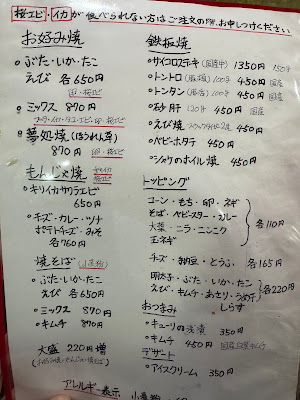 桜エビ・イカが食べられない方はご注文の際、お申しつけください
お好み焼
ぶた・いか・たこ
えび 各650円
卵・桜エビ
ミックス 870円
ブタ・イカ・タコ・エビ・卵・桜エビ
夢処焼(ほうれん草)
870円 卵・桜エビ
もんじゃ焼 イカ 桜エビ
キリイカサクラエビ
650円
チーズ・カレー・ツナ
ポテトチーズ・みそ
各760円
焼そば
ぶた・いか・たこ
えび 各650円
ミックス 870円
キムチ 870円
大盛 220円増
鉄板焼
サイコロステーキ 1350円 150g
トントロ 100g 450円 国産
トンタン 100g 450円 国産
砂肝 120g 450円 国産
えび焼 450円
ベビーホタテ 450円
シャケのホイル焼 450円
トッピング
コーン・もち・卵・ネギ
そば・ベビスター・カレー
大葉・ニラ・ニンニク
玉ネギ
各110円
チーズ・納豆・とうふ 各165円
明太子・ぶた・いか・たこ
えび・キムチ・あさり・うめ
しらす
各220円
おつまみ
キューリの浅漬 350円
キムチ 450円 国産白菜キムチ
デザート
アイスクリーム 350円
アレルギー表示 小麦粉